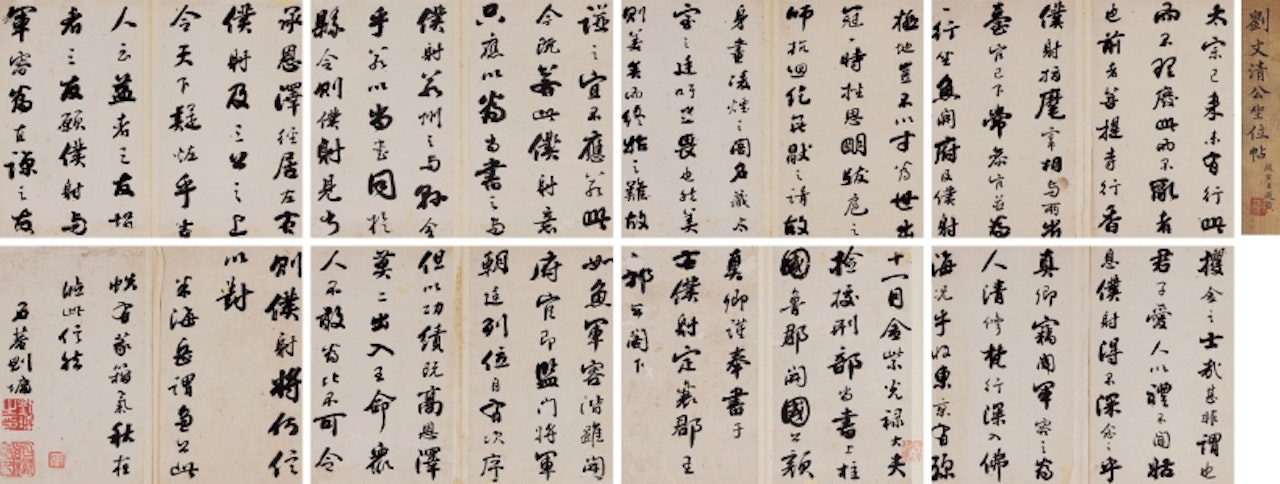 劉文清公坐位帖
太宗已来未有行此
而不理廢此而不亂者
也前者菩提寺行香
僕射指麾宰相与兩省
臺省已下常參官並為
一行坐魚開府及僕射
極地豈不以才為世出
冠一時挫思明跋扈之
師抗迴紇無厭之請故
身畫凌煙之閣名藏太
室之廷吁足畏也然美
則美矣而終始之難故
謹之宜不應若此
今既若此僕射意
只應以為尚書之与
僕射若州之与縣令
乎若以尚書同於
縣令則僕射見尚
承恩澤徑居左右
僕射及三公之上
令天下疑恠乎古
人云益者三友損
者三友願僕射与
軍容為直諒之友
攫金之士哉甚非謂也
君子愛人以禮不聞姑
息僕射得不深念之乎
真卿竊聞軍容之為
人清修梵行深入佛
海况乎收東京有殄
十一月金紫光禄大夫
檢挍刑部尚書上柱
國魯郡開國公顏
真卿謹奉書于
右僕射定襄郡王
郭公閣下
如魚軍容階雖開
府官即監門將軍
朝廷列位自有次序
但以功績既高恩澤
莫二出入王命衆
人不敢為比不可令
則僕射將何位
以對
米海岳謂魯公此
帖有篆籀氣秋在
臨此信然
石菴劉墉